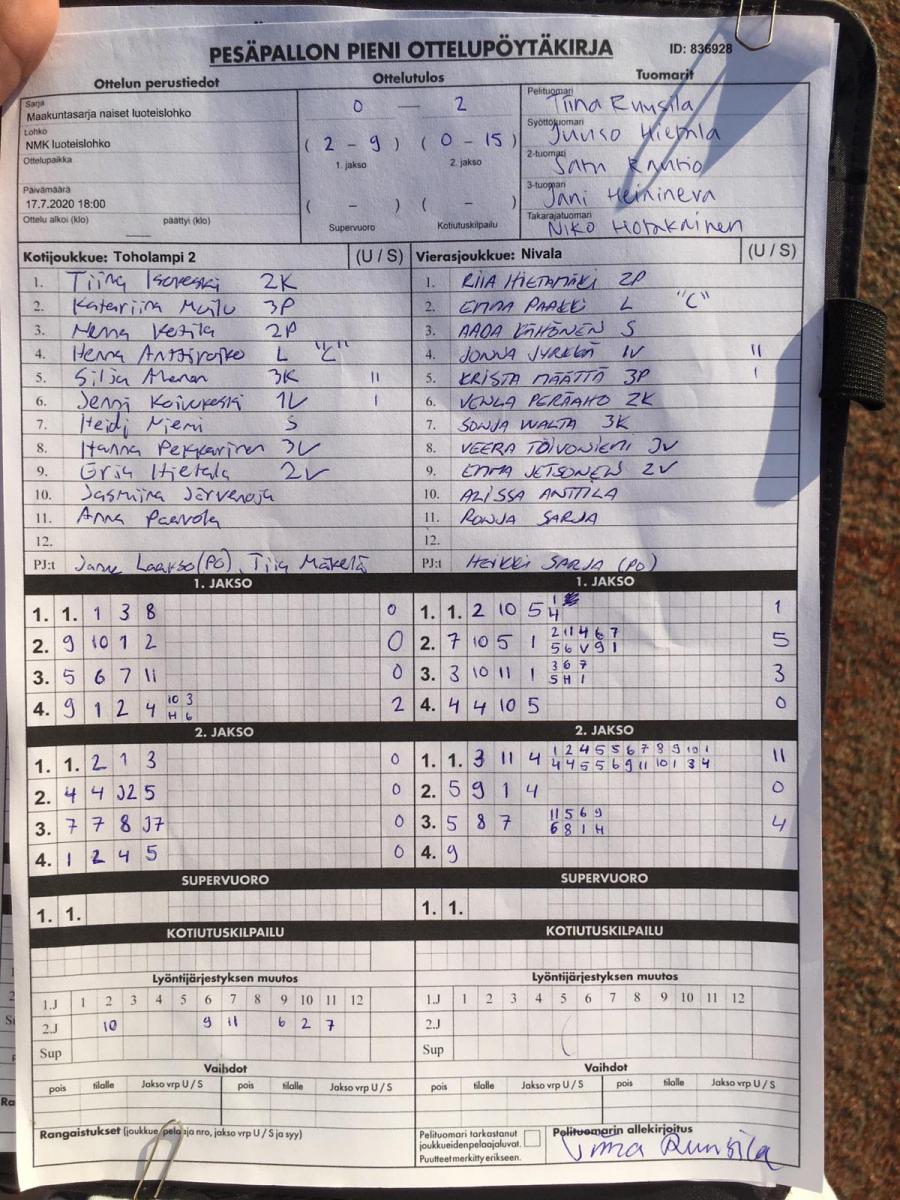 PESÄPALLON PIENI OTTELUPÖYTÄKIRJA ID: 836928
Ottelun perustiedot Ottelutulos Tuomarit
Sarja
Maakuntasarja naiset luoteislohko
Lohko
NMK luoteislohko
Ottelupaikka
Päivämäärä
17.7.2020 18:00
Ottelu alkoi (klo) päättyi (klo)
0 — 2
( 2 - 9 ) ( 0 - 15 )
1. jakso 2. jakso
( - ) ( - )
Supervuoro Kotiutuskilpailu
Pelituomari
Tiina Ruusila
Syöttötuomari
Juuso Hietala
2-tuomari
Satu Rautio
3-tuomari
Jani Heinineva
Takarajatuomari
Niko Hotakainen
Kotijoukkue: Toholampi 2 (U / S) Vierasjoukkue: Nivala (U / S)
1. Tiina Isokoski 2K 1. RIIA HIETAMÄKI 2P
2. Katariina 3P 2. EMMA PAAKKI L "C"
3. Henna Ketola 2P 3. AADA KÄHÖNEN S
4. Henna Anttiroiko L "C" 4. JONNA JYRKKÄ 1V II
5. Silja 3K II 5. KRISTA MÄÄTTÄ 3P I
6. Jenni Koivukoski 1V I 6. VENLA PERÄAHO 2K
7. Heidi Niemi S 7. SONJA WALTA 3K
8. Hanna Pekkarinen 3V 8. VEERA TOIVONIEMI 3V
9. Eria Hietala 2V 9. EMMA JETSONEN 2V
10. Jasmina Järvenoja 10. ALISSA ANTTILA
11. Anna Paavola 11. RONJA SARJA
12. 12.
PJ:t Janne Laakso (PO), Tiia Mäkelä PJ:t HEIKKI SARJA (PO)
1. JAKSO 1. JAKSO
1. 1. 1 3 8 0
2. 9 10 1 2 0
3. 5 6 7 11 0
4. 9 1 2 4 10 3 2
H 6
1. 1. 2 10 5 1 1
4
2. 7 10 5 1 2 11 4 6 7 5
5 6 V 9 1
3. 3 10 11 1 3 6 7 3
5 H 1
4. 4 4 10 5 0
2. JAKSO 2. JAKSO
1. 1. 2 1 3 0
2. 4 4 J2 5 0
3. 7 7 8 J7 0
4. 1 2 4 5 0
1. 1. 3 11 4 1 2 4 5 5 6 7 8 9 10 1 11
4 4 5 5 6 9 11 10 1 3 4
2. 5 9 1 4 0
3. 5 8 7 11 5 6 9 4
6 8 1 H
4. 9
SUPERVUORO SUPERVUORO
1. 1. 1. 1.
KOTIUTUSKILPAILU KOTIUTUSKILPAILU
Lyöntijärjestyksen muutos Lyöntijärjestyksen muutos
1.J 1 2 3 4 5 6 7 8 9 10 11 12 1.J 1 2 3 4 5 6 7 8 9 10 11 12
2.J 10 9 11 6 2 7 2.J
Sup Sup
Vaihdot Vaihdot
pois tilalle Jakso vrp U / S pois tilalle Jakso vrp U / S pois tilalle Jakso vrp U / S pois tilalle Jakso vrp U / S
Rangaistukset (joukkue/pelaaja nro, jakso vrp U / S ja syy)
Pelituomari tarkastanut
joukkueidenpelaajaluvat.
Puutteet merkitty erikseen.
Pelituomarin allekirjoitus
Tiina Ruusila